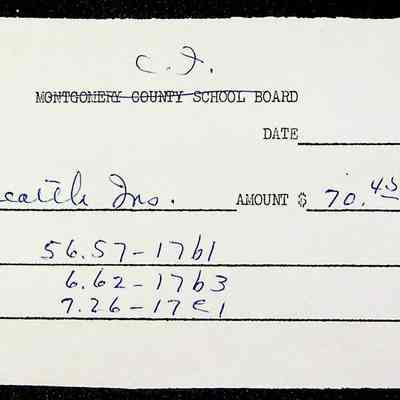 C. I.
MONTGOMERY COUNTY SCHOOL BOARD
DATE
Ins. AMOUNT $ 70.45
56.57-17b1
6.62-17b3
7.26-17c1